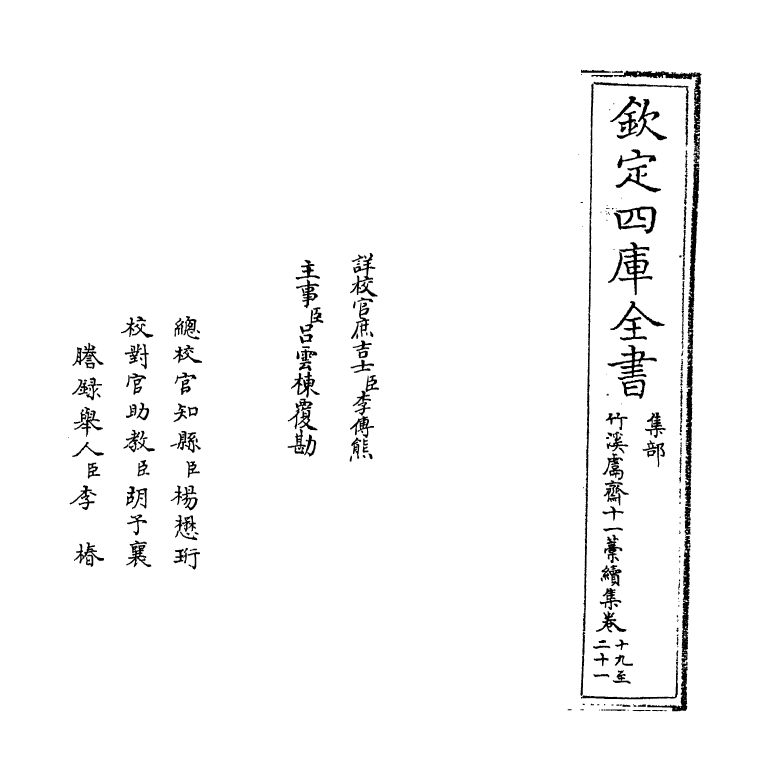 欽定四庫全書
集部
竹溪鬳齋十一藁續集卷十九至二十一
詳校官庶吉士臣李傅熊
主事臣呂雲棟覆勘
總校官知縣臣楊懋珩
校對官助教臣胡予襄
謄錄舉人臣李椿